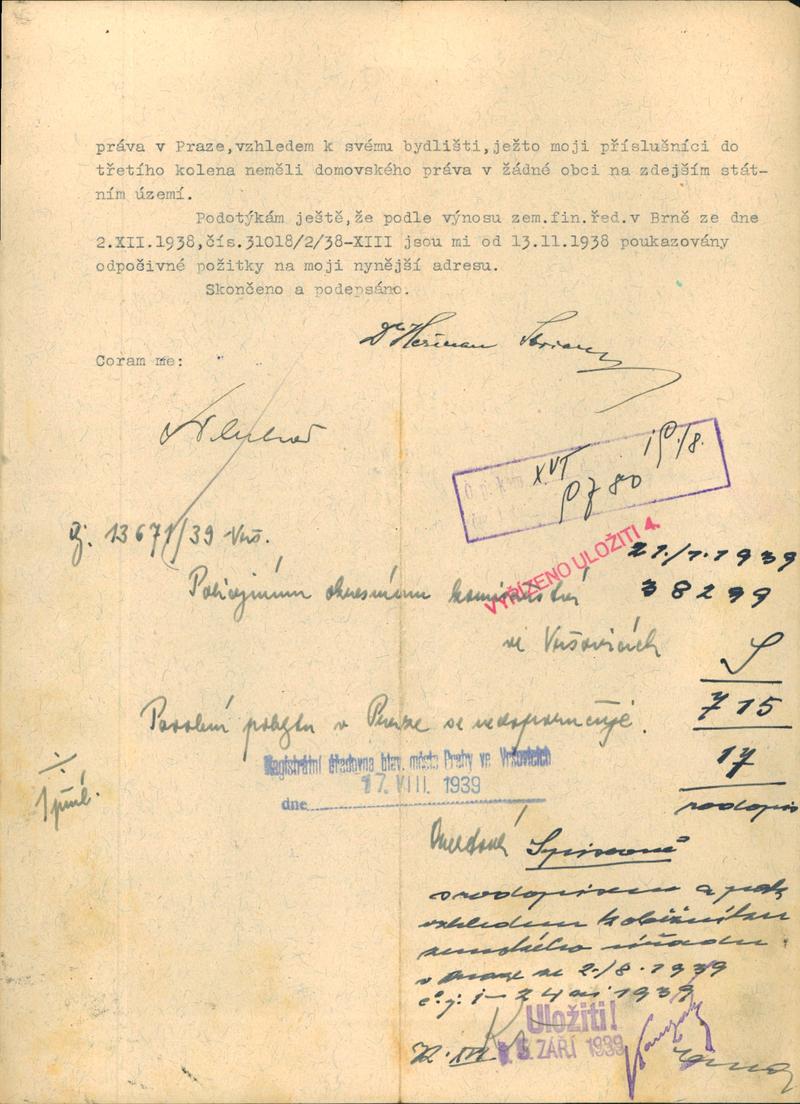 práva v Praze,vzhledem k svému bydlišti,ježto moji příslušníci do
třetího kolena neměli domovského práva v žádné obci na zdejším stát-
ním území.
Podotýkám ještě,že podle výnosu zem.fin.řed.v Brně ze dne
2.XII.1938,čís.31018/2/38-XIII jsou mi od 13.11.1938 poukazovány
odpočivné požitky na moji nynější adresu.
Skončeno a podepsáno.
Dr Heřman
Coram me:
XVI
19./8.
80
13671/39 Vrš.
VYŘÍZENO ULOŽITI 4.
21./1.1939
Policejnímu okresnímu komisařství
38299
ve Vršovicích
715
Povolení pobytu v Praze se nedoporučuje.
17
Magistrátní úřadovna hlav. města Prahy ve Vršovicích
17. VIII. 1939
dne
1 příl.
rodopis
Spisovně
s rodopisem a pak
vzhledem k oběžníku
zemského úřadu
v Praze ze 2./8.1939
č.j: 1939
Uložiti!
ZÁŘÍ 1939